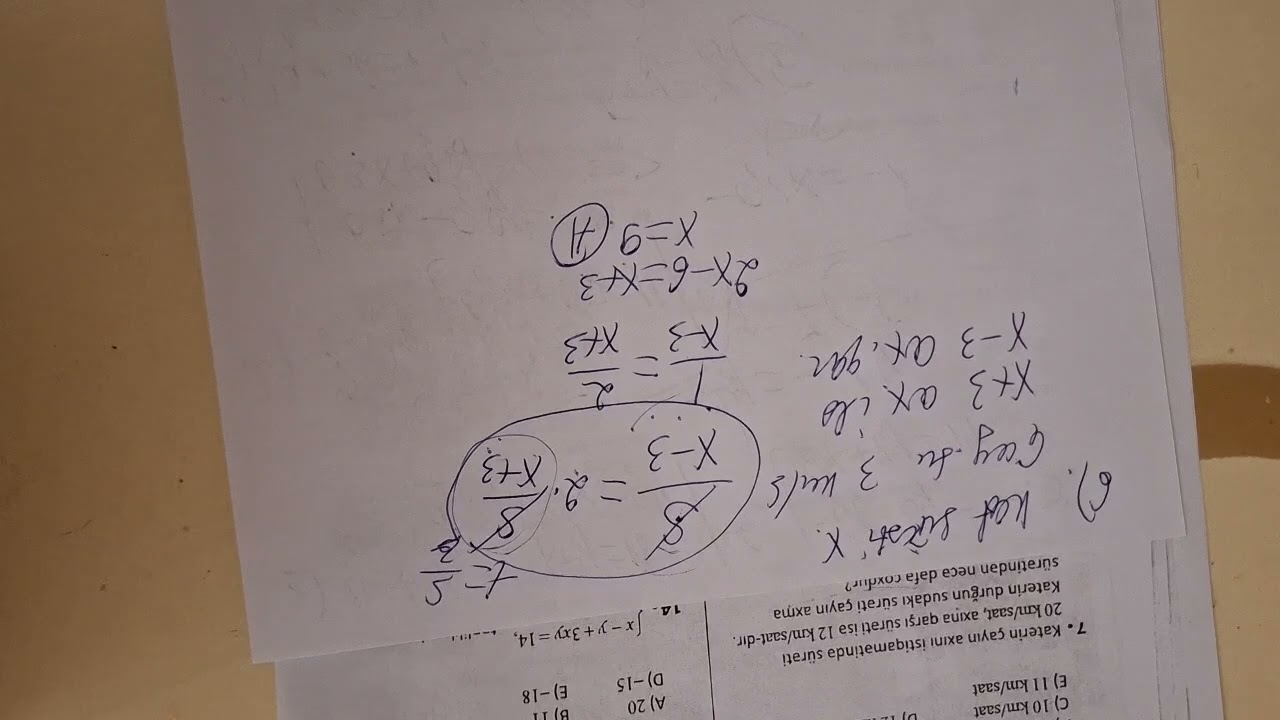 C) 10 km/saat
E) 11 km/saat
7. Katerin çayın axını istiqamətində sürəti
20 km/saat, axına qarşı sürəti isə 12 km/saat-dır.
Katerin durğun sudakı sürəti çayın axma
sürətindən neçə dəfə çoxdur?
A) 20 B) 11
D) −15 E) −18
14. x − y + 3xy = 14,
6). Kat sürəti x.
Çay. su 3 km/s
x+3 ax ilə
x−3 ax. qar.
t = S/
8/x−3 = 2 · 8/x+3
1/x−3 = 2/x+3
2x−6=x+3
x=9 A